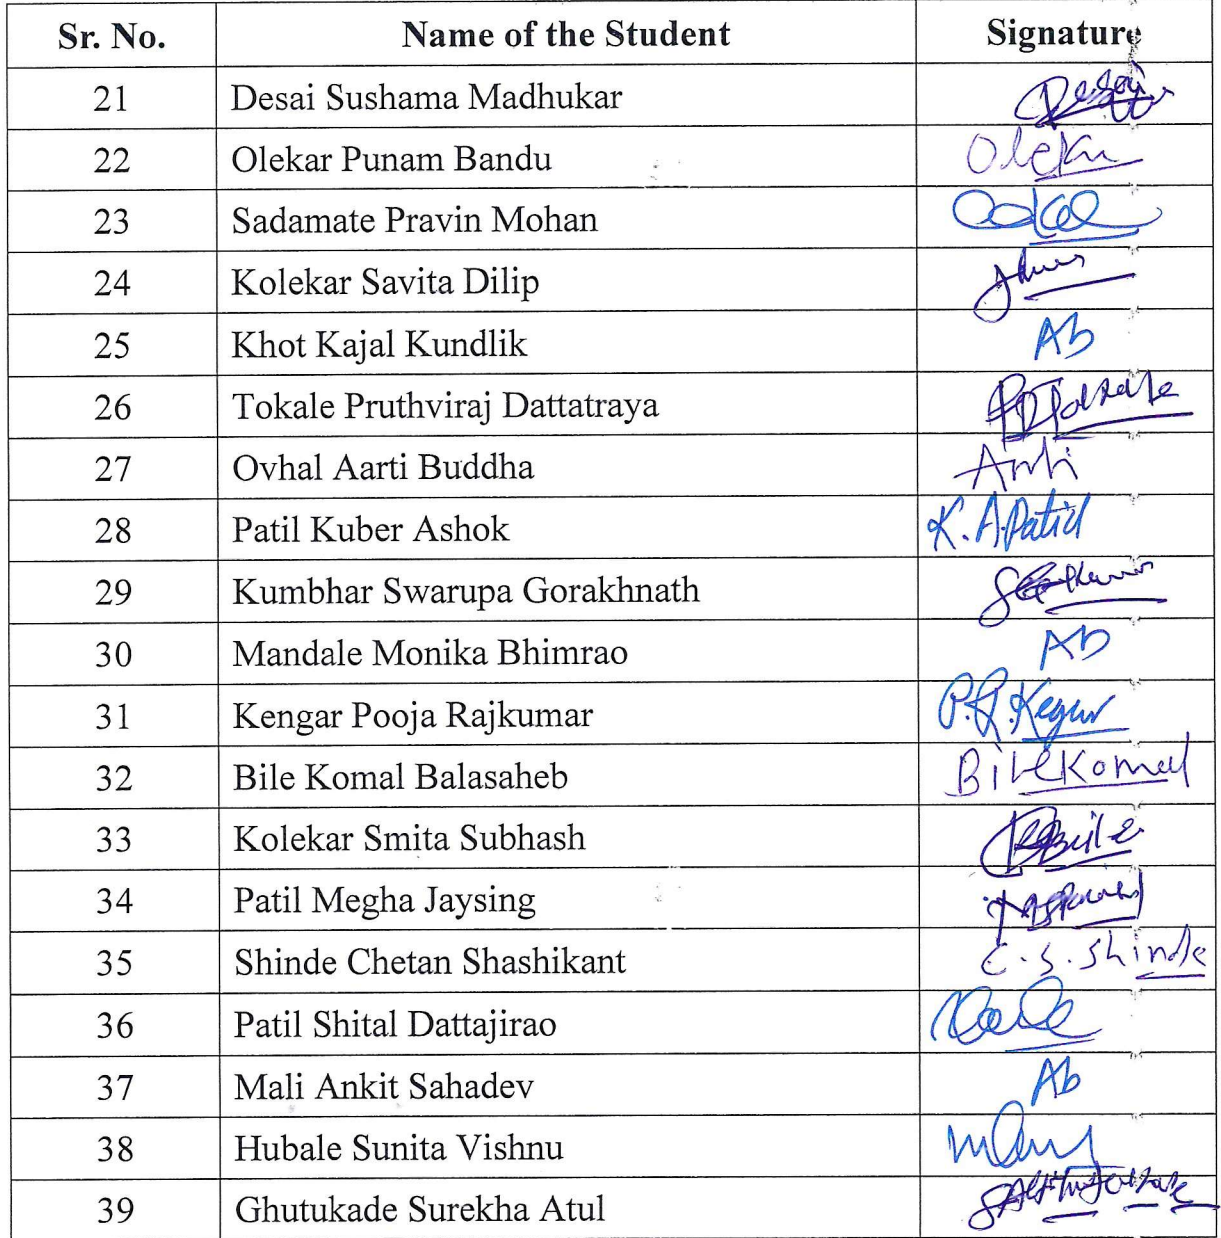 Sr. No. Name of the Student Signature
21 Desai Sushama Madhukar Desai
22 Olekar Punam Bandu Olekar
23 Sadamate Pravin Mohan
24 Kolekar Savita Dilip
25 Khot Kajal Kundlik Ab
26 Tokale Pruthviraj Dattatraya
27 Ovhal Aarti Buddha
28 Patil Kuber Ashok K. A. Patil
29 Kumbhar Swarupa Gorakhnath
30 Mandale Monika Bhimrao Ab
31 Kengar Pooja Rajkumar
32 Bile Komal Balasaheb Bile Komal
33 Kolekar Smita Subhash
34 Patil Megha Jaysing
35 Shinde Chetan Shashikant C. S. Shinde
36 Patil Shital Dattajirao
37 Mali Ankit Sahadev Ab
38 Hubale Sunita Vishnu
39 Ghutukade Surekha Atul